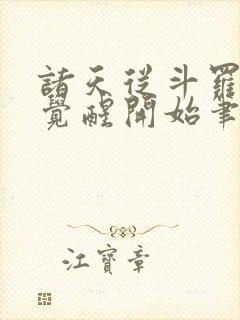 諸天從斗羅
覺醒開始筆
江寶章